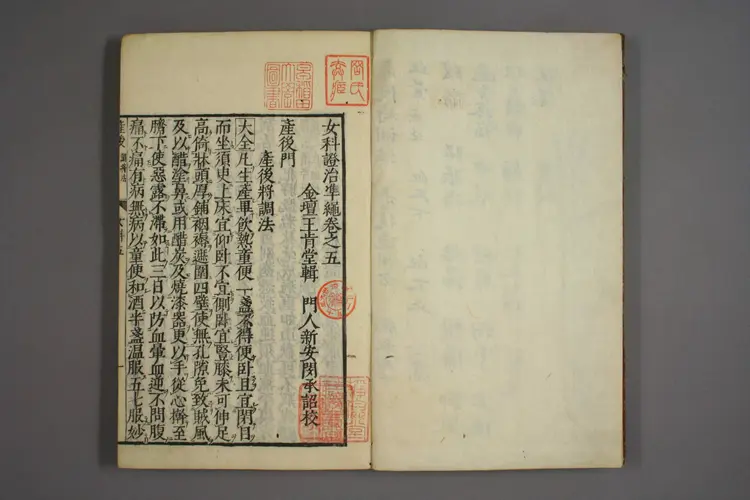 女科證治準繩卷之五
金壇王肯堂輯 門人新安閔承詔校
產後門
產後將調法
大全凡生產畢飲熱童便一盞不得便臥且宜閉目
而坐須臾上牀宜仰臥不宜側臥宜豎膝未可伸足
高倚牀頭厚鋪裀褥遮圍四壁使無孔隙免致賊風
及以醋塗鼻或用醋炭及燒漆器更以手從心擀至
臍下使惡露不滯如此三日以防血暈血逆不問腹
痛不痛有病無病以童便和酒半盞溫服五七服妙
女科五